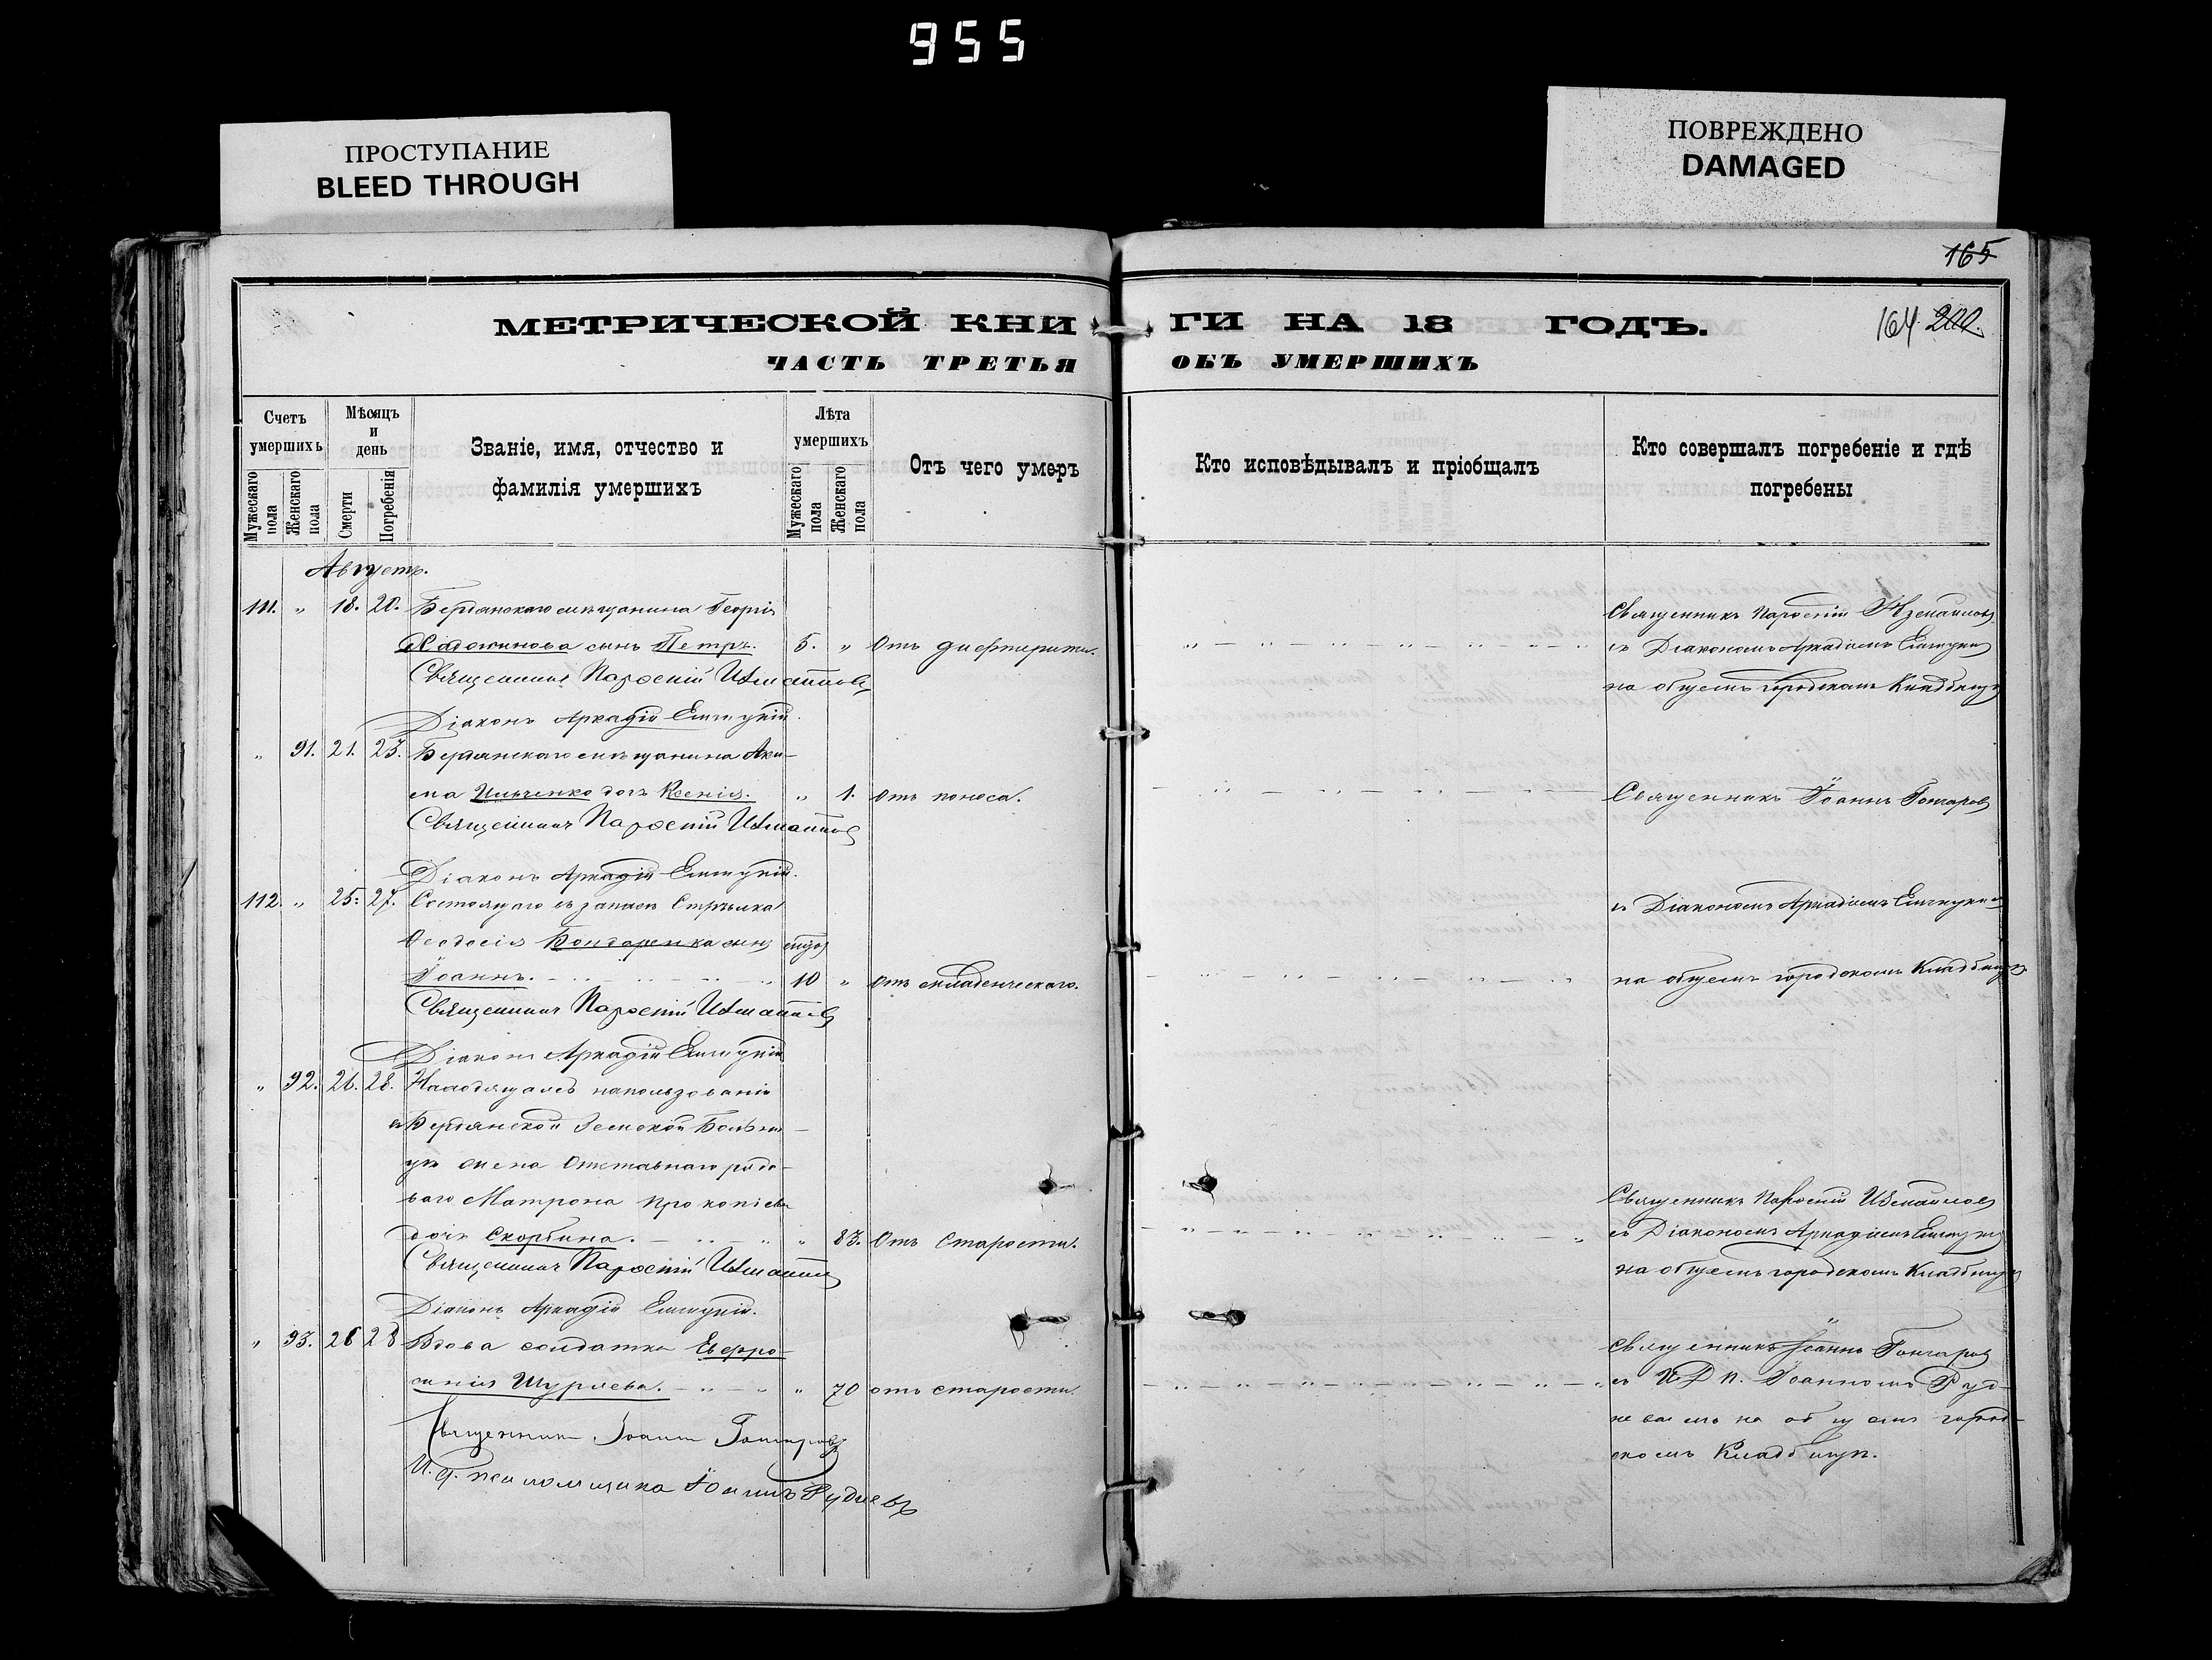 955
ПРОСТУПАНИЕ
BLEED THROUGH
ПОВРЕЖДЕНО
DAMAGED
165
164. 200.
МЕТРИЧЕСКОЙ КНИГИ НА 18 ГОДЪ.
ЧАСТЬ ТРЕТЬЯ ОБЪ УМЕРШИХЪ
Счетъ умершихъ
Мужескаго пола
Женскаго пола
Мѣсяцъ и день
Смерти
Погребенія
Званіе, имя, отчество и фамилія умершихъ
Лѣта умершихъ
Мужескаго пола
Женскаго пола
Отъ чего умеръ
Кто исповѣдывалъ и пріобщалъ
Кто совершалъ погребеніе и гдѣ погребены
Августъ.
111. " 18. 20. Бердянскаго мѣщанина Георгія
сынъ Петръ. 5. " Отъ дифтерита.
Священникъ
Діаконъ Аркадій
Священникъ
съ Діакономъ Аркадіемъ
на общемъ городскомъ Кладбищѣ
" 91. 21. 23. Бердянскаго мѣщанина Аки-
ма Ильченко дочь Ксенія. " 1. Отъ поноса.
Священникъ
Діаконъ Аркадій
Священникъ Іоаннъ Гончаровъ
112. " 25. 27. Состоящаго въ запасѣ Стрѣлка
Ѳеодосія Бондаренка сынъ
Іоаннъ. 10 " Отъ младенческаго.
Священникъ
Діаконъ Аркадій
съ Діакономъ Аркадіемъ
на общемъ городскомъ Кладбищѣ
" 92. 26. 28. Находящаясь на пользованіи
въ Бердянской Земской Больни-
цѣ жена Отставнаго рядо-
ваго Матрона Прокопіева
дочь Скорбина. " 83. Отъ Старости.
Священникъ
Діаконъ Аркадій
Священникъ
съ Діакономъ Аркадіемъ
на общемъ городскомъ Кладбищѣ
" 93. 26 28 Вдова солдатка Евфро-
синія Шуряева. " 70 отъ старости.
Священникъ Іоаннъ Гончаровъ
И. д. псаломщика Іоаннъ Рудневъ
Священникъ Іоаннъ Гончаровъ
съ И Д П. Іоанномъ Руд-
невымъ на общемъ город-
скомъ Кладбищѣ.